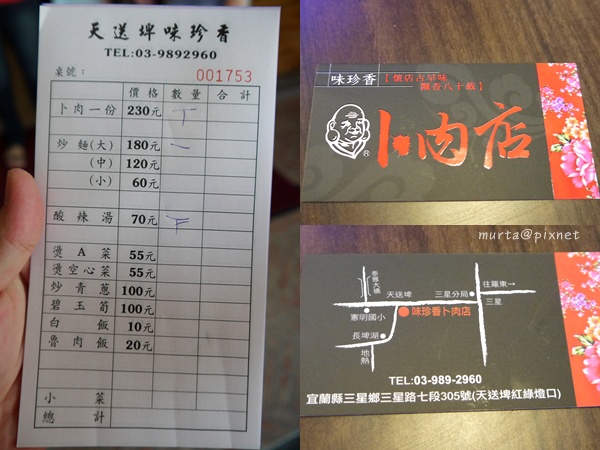 天送埤味珍香
TEL:03-9892960
桌號： 001753
價格 數量 合計
卜肉一份 230元 T
炒麵(大) 180元 一
(中) 120元
(小) 60元
酸辣湯 70元 下
燙A菜 55元
燙空心菜 55元
炒青蔥 100元
碧玉筍 100元
白飯 10元
魯肉飯 20元
小菜
總計
味珍香【懷店古早味
飄香八十載】
卜肉店
®
murta@pixnet
泰雅大橋
天送埤
三星分局
往羅東→
三星
憲明國小
味珍香卜肉店
長埤湖
地熱
TEL:03-989-2960
宜蘭縣三星鄉三星路七段305號(天送埤紅綠燈口)